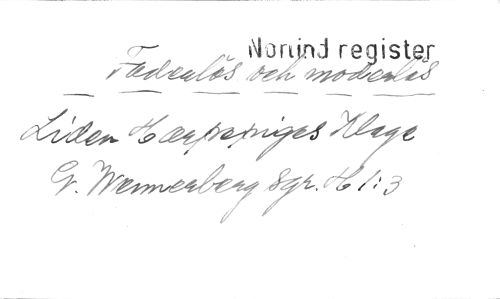 Norlind register
Faderlös och moderlös
Liden Harpespiges Klage
G. Wennerberg Sgr. H 1:3